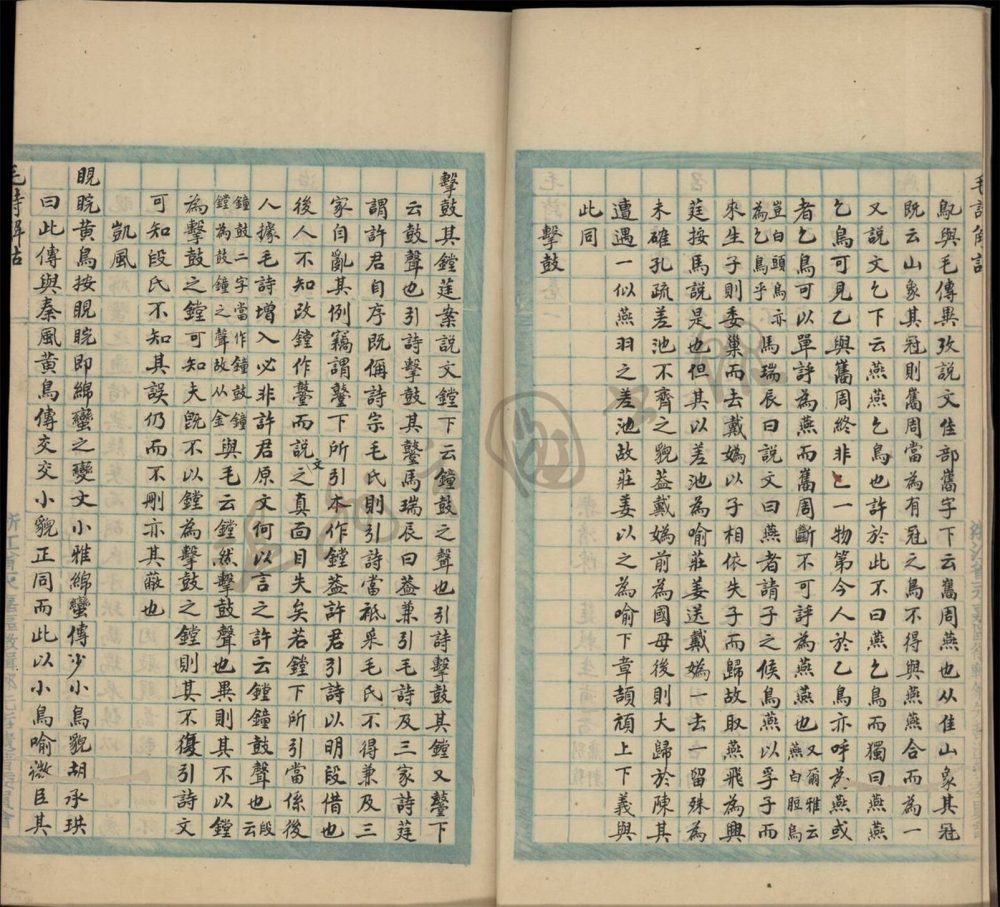 毛詩解詁
鳦與毛傳異攷說文隹部巂字下云巂周燕也从隹山象其冠
既云山象其冠則巂周當為有冠之鳥不得與燕燕合而為一
又說文乞下云燕燕乞鳥也許於此不曰燕乞鳥而獨曰燕燕
乞鳥可見乙與巂周終非一物第今人於乙鳥亦呼為燕或
者乞鳥可以單評為燕而巂周斷不可評為燕也又爾雅云燕白脰烏
豈白頭烏亦為乞鳥乎馬瑞辰曰說文曰燕者請子之候鳥燕以孚子而
來生子則委巢而去戴媯以子相依失子而歸故取燕飛為興
莛按馬說是也但其以差池為喻莊姜送戴媯一去一留殊為
未確孔疏差池不齊之貌蓋戴媯前為國母後則大歸於陳其
遭遇一似燕羽之差池故莊姜以之為喻下章頡頏上下義與
此同
擊鼓
擊鼓其鏜莛案說文鏜下云鐘鼓之聲也引詩擊鼓其鏜又鼞下
云鼓聲也引詩擊鼓其鼞馬瑞辰曰蓋兼引毛詩及三家詩莛
謂許君自序既稱詩宗毛氏則引詩當祗采毛氏不得兼及三
家自亂其例竊謂鼞下所引本作鏜蓋許君引詩以明段借也
後人不知改鏜作鼞而說文之真面目失矣若鏜下所引當係後
人據毛詩增入必非許君原文何以言之許云鏜鐘鼓聲也段云
鐘鼓二字當作鐘鼓鐘鏜為鼓鐘之聲故从金與毛云鏜然擊鼓聲也異則其不以鏜
為擊鼓之鏜可知夫既不以鏜為擊鼓之鏜則其不復引詩文
可知段氏不知其誤仍而不刪亦其蔽也
凱風
睍睆黃鳥按睍睆即綿蠻之變文小雅綿蠻傳少小鳥貌胡承珙
曰此傳與秦風黃鳥傳交交小貌正同而此以小鳥喻微臣其
毛詩解詁